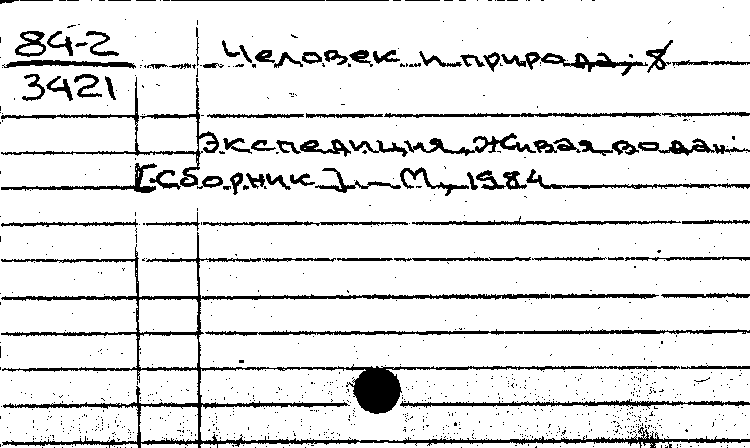 84-2
3421
Человек и природа; 8
Экспедиция "Живая вода":
[Сборник]. - М., 1984